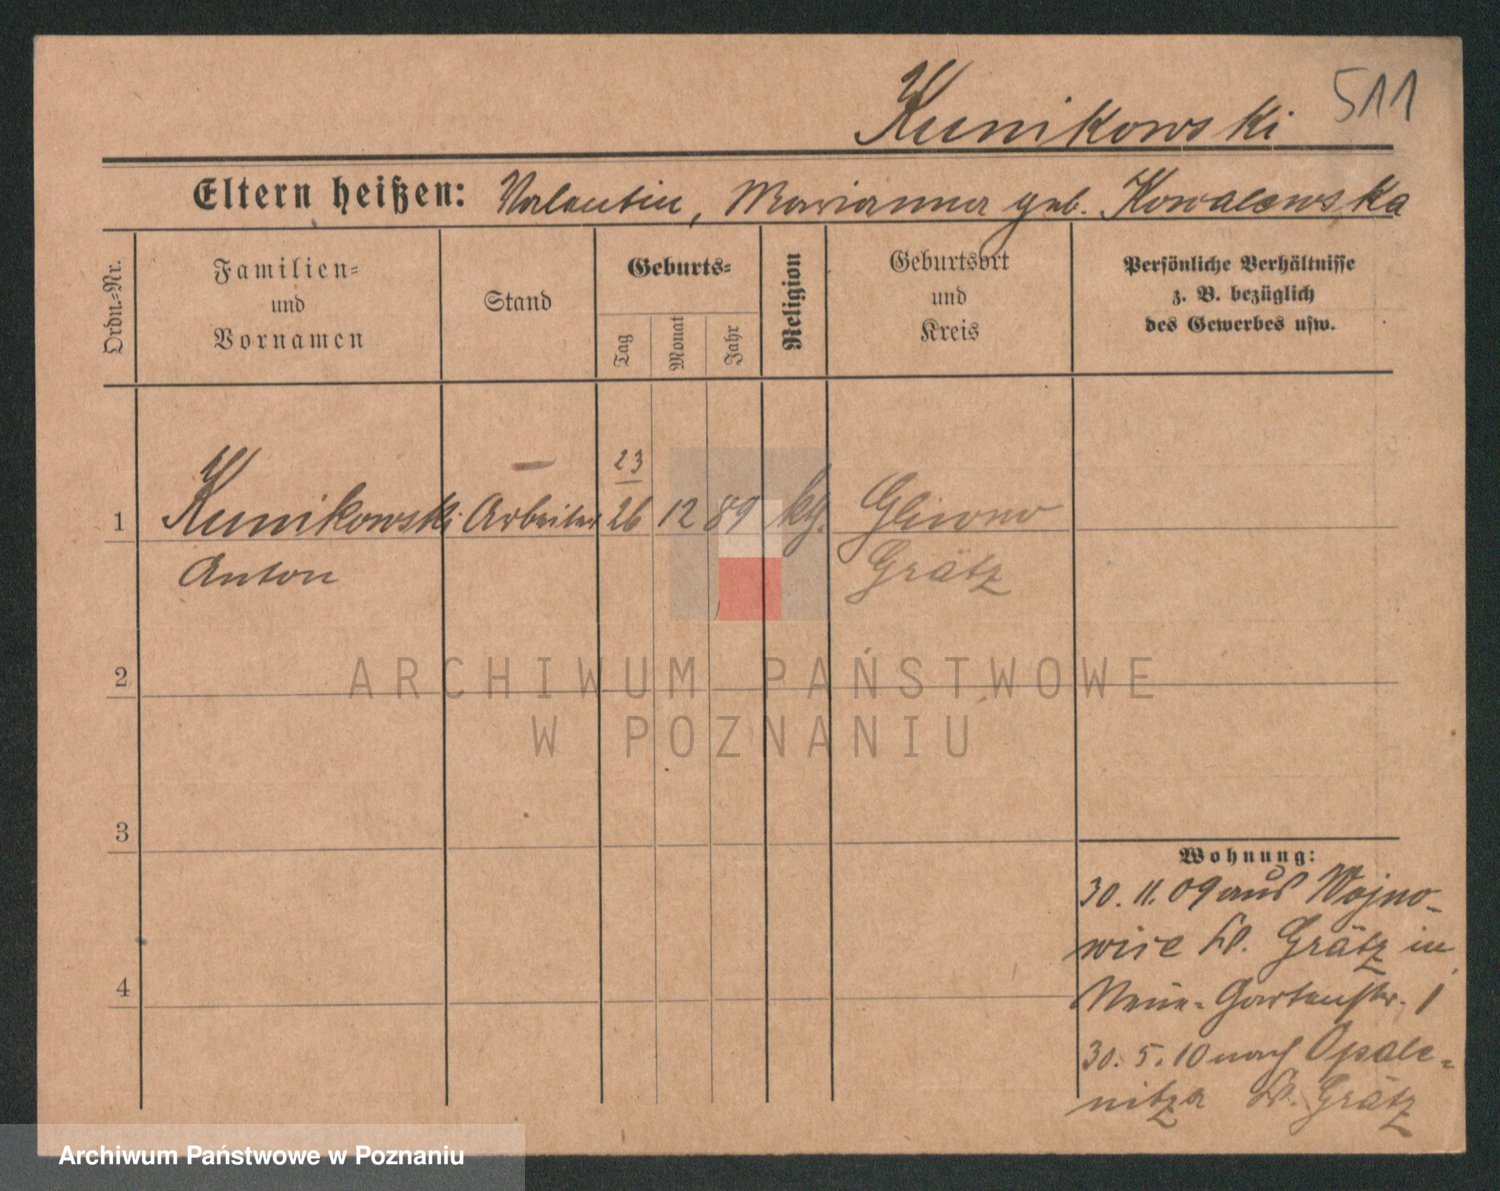 511
Kunikowski
Eltern heißen: Valentin, Marianna geb. Kowalewska
Ordn.-Nr.
Familien-
und
Vornamen
Stand
Geburts-
Tag
Monat
Jahr
Religion
Geburtsort
und
Kreis
Persönliche Verhältnisse
z. B. bezüglich
des Gewerbes usw.
23
1 Kunikowski Arbeiter 26 12 89 kth. Gliwno
Anton Grätz
2
ARCHIWUM PAŃSTWOWE
W POZNANIU
3
Wohnung:
30. 11. 09 aus Wojno-
wice Kr. Grätz in
4
Neue-Gartenstr. 1
30. 5. 10 nach Opale-
nitza Kr. Grätz
Archiwum Państwowe w Poznaniu